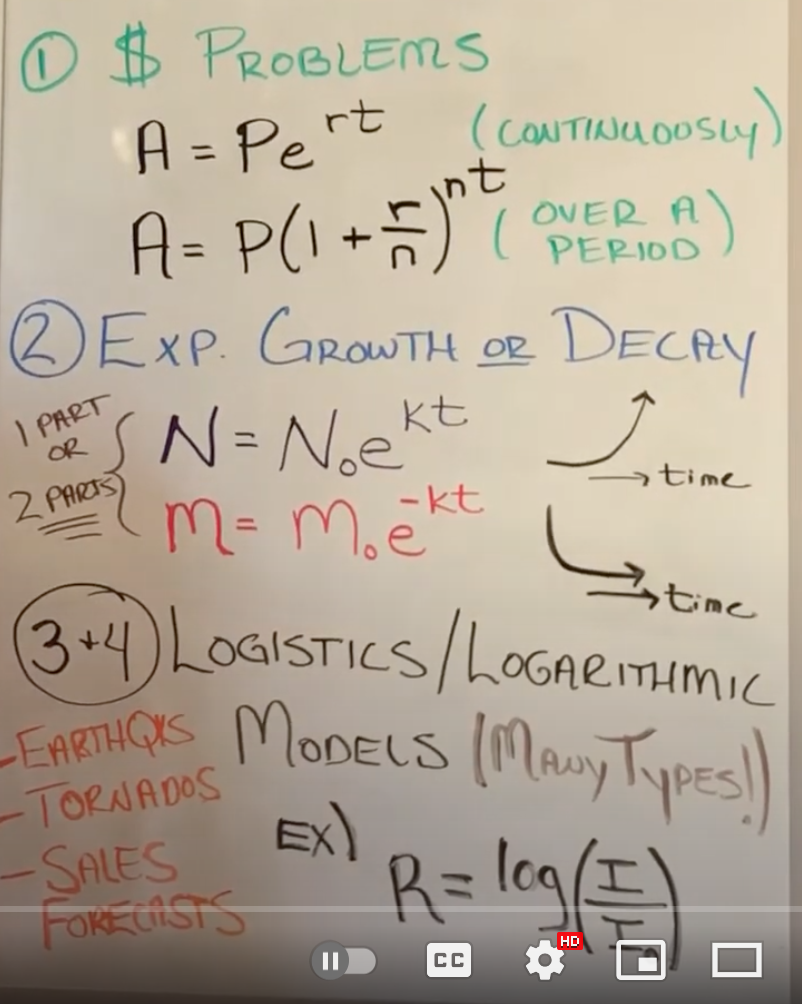 ① $ PROBLEMS
A = Pe^rt (CONTINUOUSLY)
A = P(1 + r/n)^nt (OVER A PERIOD)
② EXP. GROWTH OR DECAY
1 PART OR 2 PARTS
N = N₀e^kt
→ time
m = m₀e^-kt
→ time
3+4 LOGISTICS/LOGARITHMIC
MODELS (MANY TYPES!!)
- EARTHQKS
- TORNADOS
- SALES FORECASTS
EX) R = log(I/I₀)
CC
HD